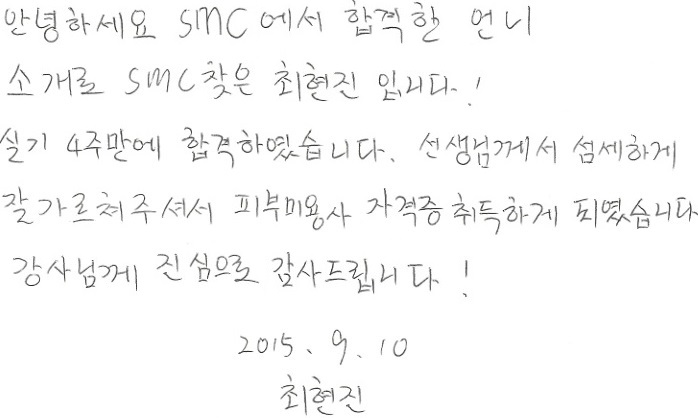 안녕하세요 SMC에서 합격한 언니
소개로 SMC찾은 최현진 입니다.!
실기 4주만에 합격하였습니다. 선생님께서 섬세하게
잘가르쳐주셔서 피부미용사 자격증취득하게 되였습니다
강사님께 진심으로 감사드립니다!
2015. 9. 10
최현진